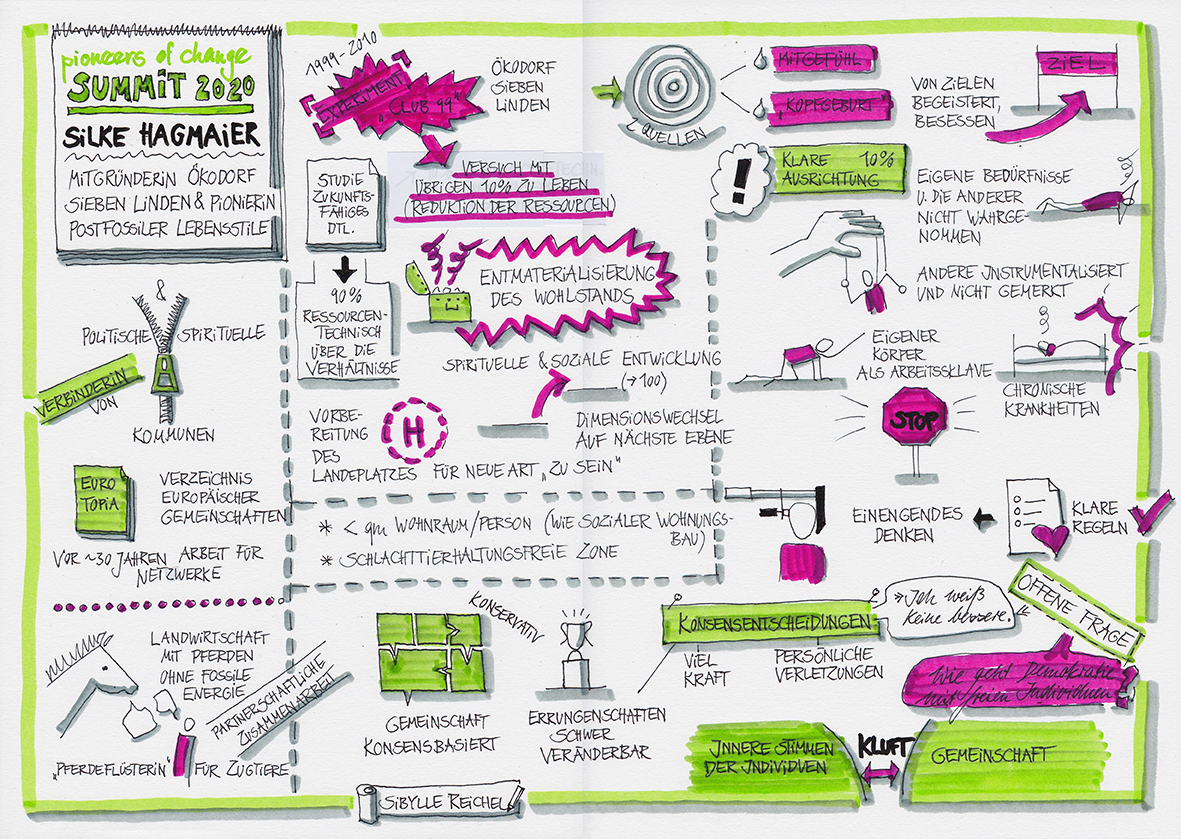 pioneers of change
SUMMIT 2020
SILKE HAGMAIER
MITGRÜNDERIN ÖKODORF
SIEBEN LINDEN & PIONIERIN
POSTFOSSILER LEBENSSTILE
&
POLITISCHE SPIRITUELLE
VERBINDERIN
VON
KOMMUNEN
EURO
TOPIA
VERZEICHNIS
EUROPÄISCHER
GEMEINSCHAFTEN
VOR ~30 JAHREN ARBEIT FÜR
NETZWERKE
LANDWIRTSCHAFT
MIT PFERDEN
OHNE FOSSILE
ENERGIE
PARTNERSCHAFTLICHE
ZUSAMMENARBEIT
„PFERDEFLÜSTERIN“ FÜR ZUGTIERE
1999-2010
EXPERIMENT
„CLUB 99“
ÖKODORF
SIEBEN
LINDEN
STUDIE
ZUKUNFTS-
FÄHIGES
DTL.
VERSUCH MIT
ÜBRIGEN 10% ZU LEBEN
(REDUKTION DER RESSOURCEN)
90%
RESSOURCEN-
TECHNISCH
ÜBER DIE
VERHÄLTNISSE
ENTMATERIALISIERUNG
DES WOHLSTANDS
SPIRITUELLE & SOZIALE ENTWICKLUNG
(→100)
VORBE-
REITUNG
DES
LANDEPLATZES FÜR NEUE ART „ZU SEIN“
H
DIMENSIONSWECHSEL
AUF NÄCHSTE EBENE
* < qm WOHNRAUM/PERSON (WIE SOZIALER WOHNUNGS-
BAU)
* SCHLACHTTIERHALTUNGSFREIE ZONE
2 QUELLEN
MITGEFÜHL
"KOPFGEBURT"
VON ZIELEN
BEGEISTERT,
BESESSEN
ZIEL
!
KLARE 10%
AUSRICHTUNG
EIGENE BEDÜRFNISSE
U. DIE ANDERER
NICHT WAHRGE-
NOMMEN
ANDERE INSTRUMENTALISIERT
UND NICHT GEMERKT
EIGENER
KÖRPER
ALS ARBEITSSKLAVE
CHRONISCHE
KRANKHEITEN
STOP
EINENGENDES
DENKEN
KLARE
REGELN
KONSERVATIV
GEMEINSCHAFT
KONSENSBASIERT
ERRUNGENSCHAFTEN
SCHWER
VERÄNDERBAR
KONSENSENTSCHEIDUNGEN
VIEL
KRAFT
PERSÖNLICHE
VERLETZUNGEN
»Ich weiß
keine bessere.«
OFFENE FRAGE
Wie geht Demokratie
mit freien Individuen
INNERE STIMMEN
DER INDIVIDUEN
KLUFT
GEMEINSCHAFT
SIBYLLE REICHEL